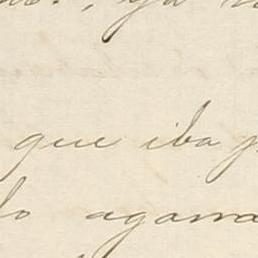 ya
que iba
lo agarra